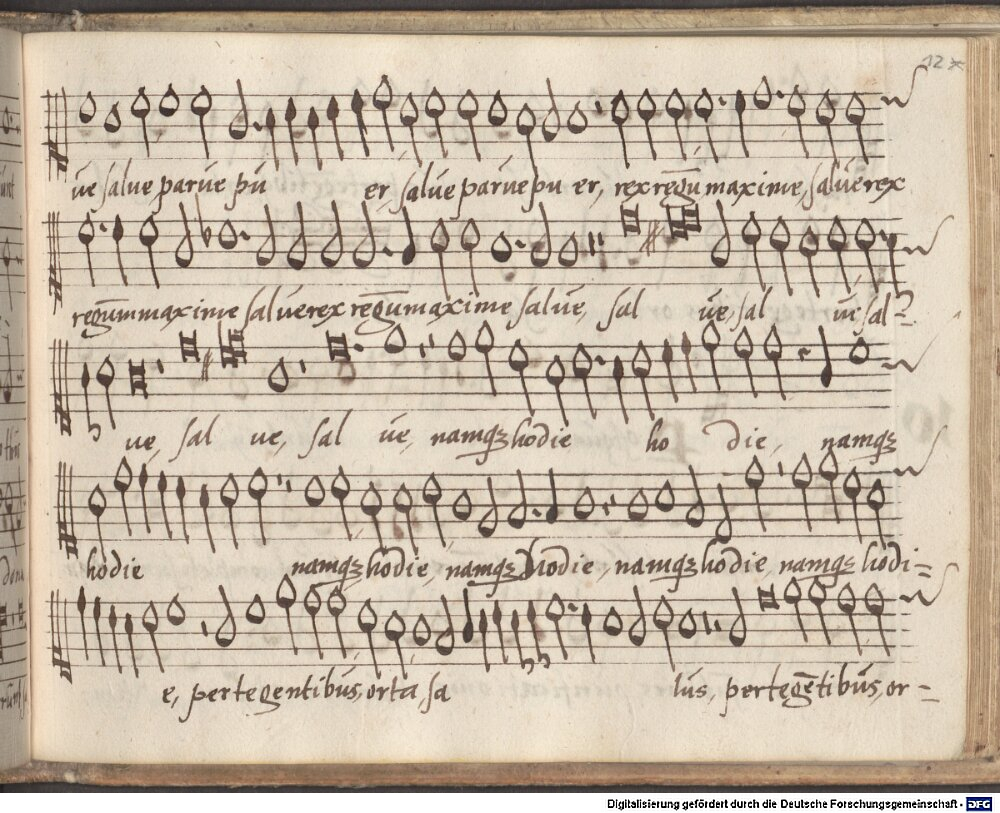 12
ūe salue parūe pū er, salūe parūe pu er, rex regū maxime, salūe rex
regūm maxime salūe rex regūm maxime salūe, sal ūe, sal ūe sal
ue, sal ue, sal ūe, namq3 hodie ho die, namq3
hodie namq3 hodie, namq3 hodie, namq3 hodie, namq3 hodi=
e, pertegentibūs, orta sa lūs, pertegētibūs, or=
Digitalisierung gefördert durch die Deutsche Forschungsgemeinschaft - DFG